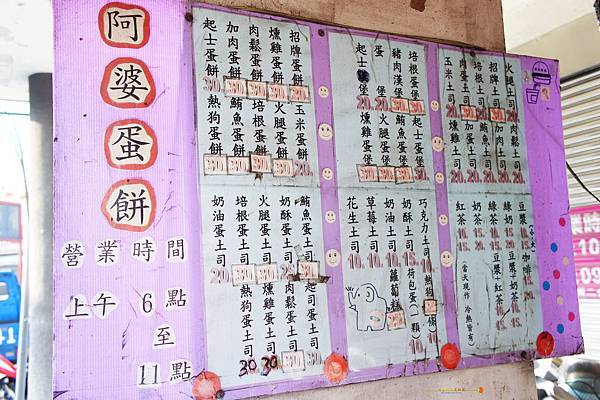 阿婆蛋餅
營業時間
上午 6點
至
11點
招牌蛋餅 30.
燻雞蛋餅 30.
肉鬆蛋餅 30.
加肉蛋餅 30.
起士蛋餅 30.
玉米蛋餅 20.
火腿蛋餅 30.
培根蛋餅 30.
鮪魚蛋餅 30.
熱狗蛋餅 30.
鮪魚蛋土司
奶酥蛋土司 25
火腿蛋土司 30
培根蛋土司 30
奶油蛋土司 20
起司蛋土司
肉鬆蛋土司 30
燻雞蛋土司 30
熱狗蛋土司 30
培根蛋堡 30.
豬肉漢堡 30.
蛋堡 20.
起士蛋堡 20.
起士蛋堡 30
鮪魚蛋堡 30.
燻雞蛋堡 30.
巧克力土司
奶酥土司
奶油土司 10
草莓土司
花生土司
熱狗一條
荷包蛋(一顆) 10
蘿蔔糕
火腿土司 20.
招牌土司
培根土司
肉片土司
玉米土司 20.
肉鬆土司
加肉土司
鮪魚土司
燻雞土司
豆漿 10. 15.
綠奶 15. 20.
綠茶 10. 15.
奶茶 15. 20.
紅茶 10. 15.
咖啡 15. 20.
豆漿+奶茶 10. 15.
豆漿+紅茶 10. 15.
(當天現作 冷熱皆有)